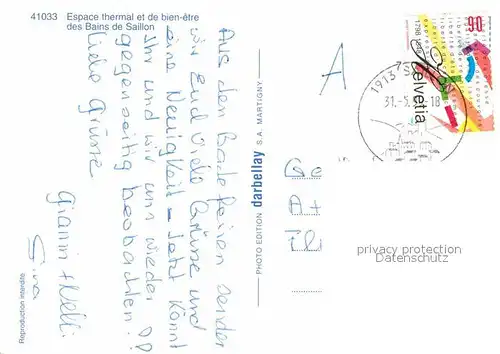 41033 Espace thermal et de bien-être
des Bains de Saillon
Aus den Badeferien senden
wir Euch viele Grüsse und
eine Neuigkeit - Jetzt könnt
Ihr und wir uns wieder
gegenseitig beobachten !??
Liebe Grüsse
Gianni + Nelli
Sina
Reproduction interdite
PHOTO EDITION darbellay S.A. MARTIGNY
A
Ge
At
1913 S
31.-5. -18
1798 1998
90
Helvetia
privacy protection
Datenschutz